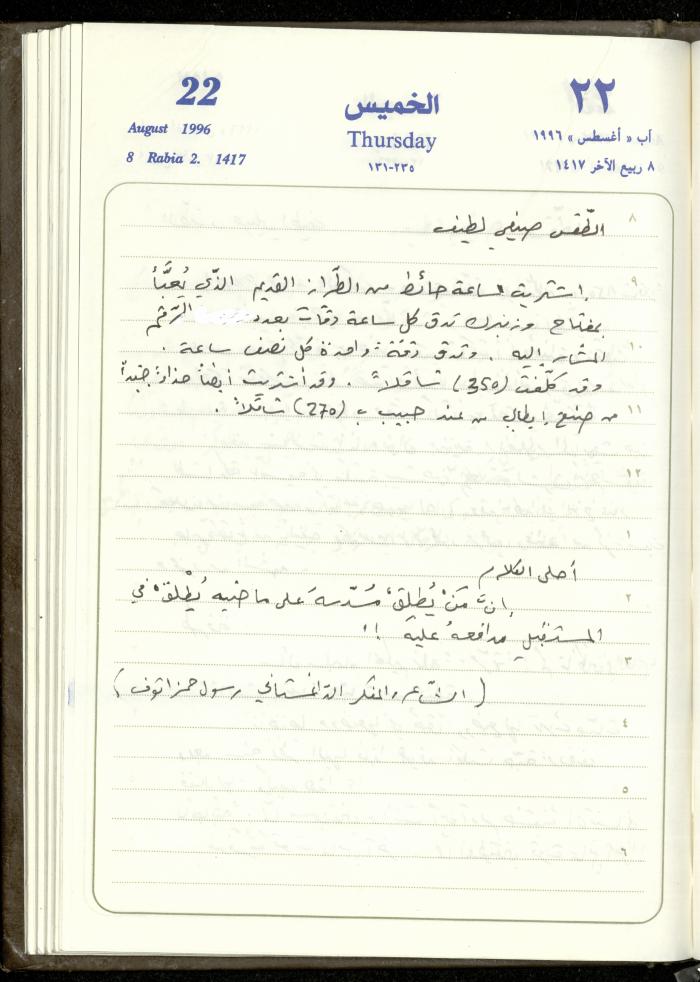 22
٢٢
الخميس
August 1996
Thursday
آب « أغسطس » ١٩٩٦
8 Rabia 2. 1417
١٣١-٢٣٥
٨ ربيع الآخر ١٤١٧
٨
الطّقس صيفي لطيف
٩
إشتريت ساعة حائط من الطّراز القديم الذّي يُعبَّأ
بمفتاح وزنبرك تدق كل ساعة دقّات بعدد الرّقم
١٠
المشار إليه . وتدق دقّة واحدة كل نصف ساعة .
وقد كلّفت (350) شاقلاً . وقد اشتريت أيضاً حذاءً جيّداً
١١
من صنع إيطالي من عند حبيب ب (270) شاقلاً .
١٢
١
أحلى الكلام
٢
إنَّ مَنْ يُطلِق مُسدّسهَ على ماضيه يُطْلِقْ في
المستقبل مدافعهُ عليه !!
٣
( الشّاعر والمفكر الدّاغستاني رسول حمزاتوف )
٤
٥
٦